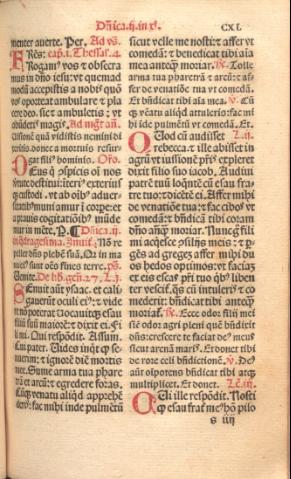 Dñica.ij.in xl. CXL
menter auerte. Per. Ad vs̃.
Res: cap̃.1. Thessal. 4.
Rogam⁹ vos ⁊ obsecra
mus in dño iesu: vt quemad
modũ accepistis a nobis quõ
vos oporteat ambulare ⁊ pla
cere deo. sic ⁊ ambuletis : vt
abũdetis magis. Ad mgr̃ añ.
Uisionẽ quã vidistis nemini di
xeritis. donec a mortuis resur
gat fili⁹ hominis. Or̃o.
Deus q̃ cõspicis oĩ nos
virtute destitui: iteri⁹ exterius
q̃ custodi. vt ab oĩb⁹ aduer
sitatib⁹ muni amur ĩ corpore et
a prauis cogitatiõib⁹ mũde
mur in mẽte. P. ¶ Dñica.ij.
in q̃dragesima. Inuit. Nõ re
pellet dñs plebẽ suã. Q̃ in ma
nu ei⁹ sunt oẽs fines terre. ps̃.
Uenite. De li. gen̄. 27. L. j.
Senuit aũt ysaac. et cali
gauerũt oculi ei⁹: ⁊ vide
re nõ poterat. Uocauitq̃ esau
filiũ suũ maiorẽ: ⁊ dixit ei. Fi
li mi. Qui respõdit. Assum.
Cui pater. Uides inq̃t q̃ se
nuerim: ⁊ ignorẽ diẽ mortis
mee. Sume arma tua phare
trã et arcũ: ⁊ egredere foras.
Cũq̃ venatu aliqd̃ apprehẽ
deris: fac mihi inde pulmẽtũ
sicut velle me nosti: ⁊ affer vt
comedã: ⁊ bñdicat tibi aĩa
mea anteq̃ moriar. Tolle
arma tua pharetrã ⁊ arcũ: ⁊ af
fer de venatiõe tua vt comedã.
Et bñdicat tibi aĩa mea. v. Cũ
q̃ vẽatu aliqd̃ attuleris: fac mi
hi ĩde pulmẽtũ vt comedã. Et.
Quod cũ audisset L.ij.
rebecca. ⁊ ille abisset in
agrũ vt iussionẽ pr̃is expleret
dixit filio suo iacob. Audiui
patrẽ tuũ loq̃ntẽ cũ esau fra
tre tuo: ⁊ dicẽtẽ ei. Affer mihi
de venatiõe tua: ⁊ fac cibos vt
comedã: ⁊ bñdicã tibi corã
dño añq̃ moriar. Nunc g̃ fili
mi acq̃esce cõsilijs meis : ⁊ p̃
gẽs ad gregẽ affer mihi du
os hedos optimos: vt faciã
ex eis escas pr̃i tuo q̃b⁹ liben
ter vescit̃. q̃s cũ intuleris ⁊ co
mederit: bñdicat tibi anteq̃
moriar. Ecce odor filij mei
sic̃ odor agri pleni quẽ bñdixit
dñs: crescere te faciat de⁹ meus
sicut arenã maris. Et donet tibi
de rore celi bñdictionẽ. v. De⁹
aũt oĩpotens bñdicat tibi atq̃
multiplicet. Et donet. Lc̃.iij.
Cui ille respõdit. Nosti
q̃ esau frat̃ me⁹ hõ pilo
s iiij